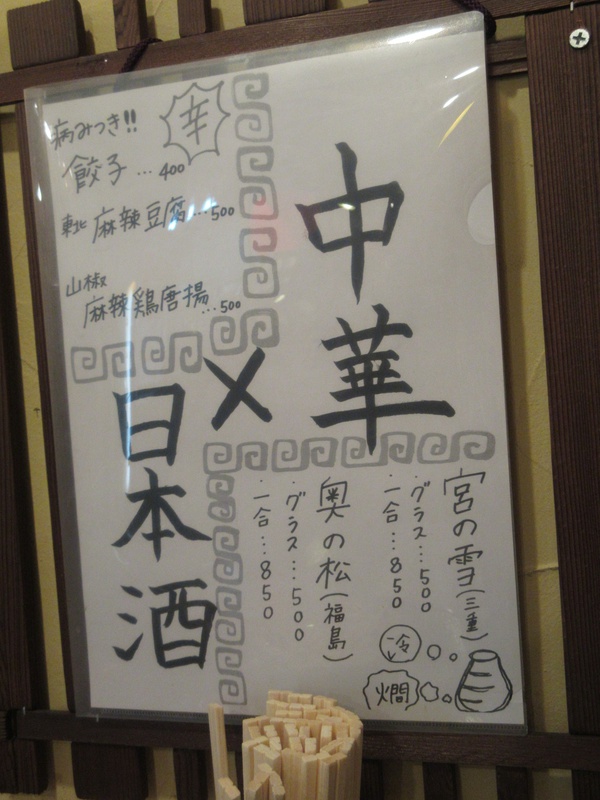 中華
×
日本酒
病みつき!!
辛
餃子…400
東北 麻辣豆腐…500
山椒
麻辣鶏唐揚…500
宮の雪(三重)
・グラス…500
・一合…850
奥の松(福島)
・グラス…500
・一合…850
冷
燗